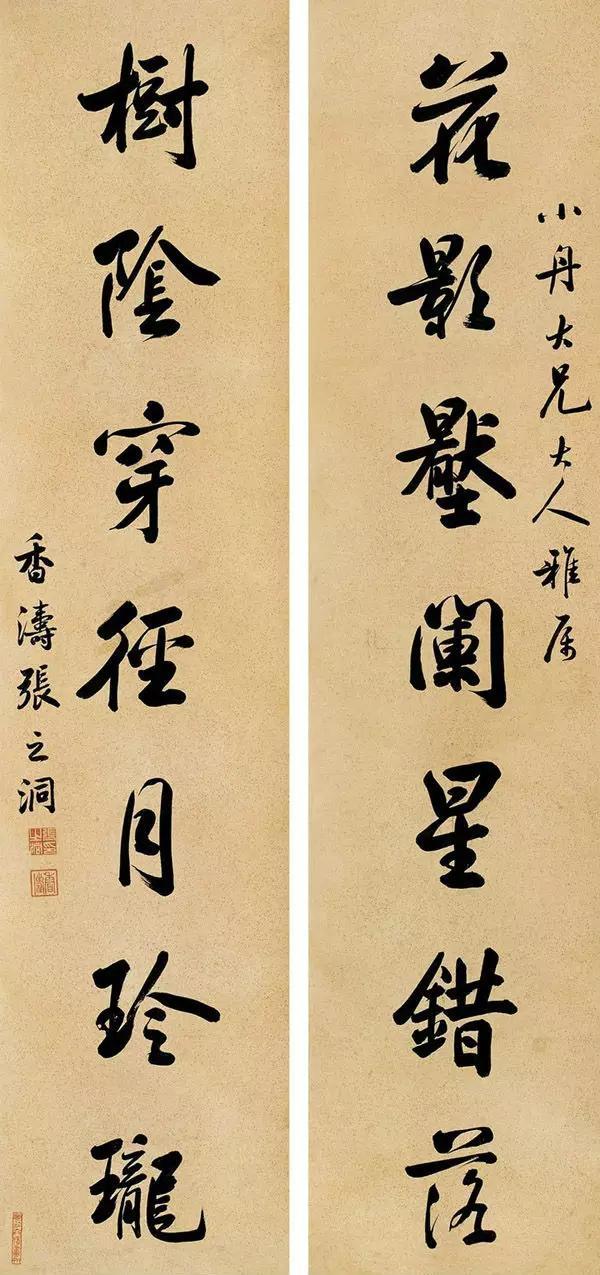 小舟大兄大人雅属
花影壓闌星錯落
樹陰穿徑月玲瓏
香濤張之洞